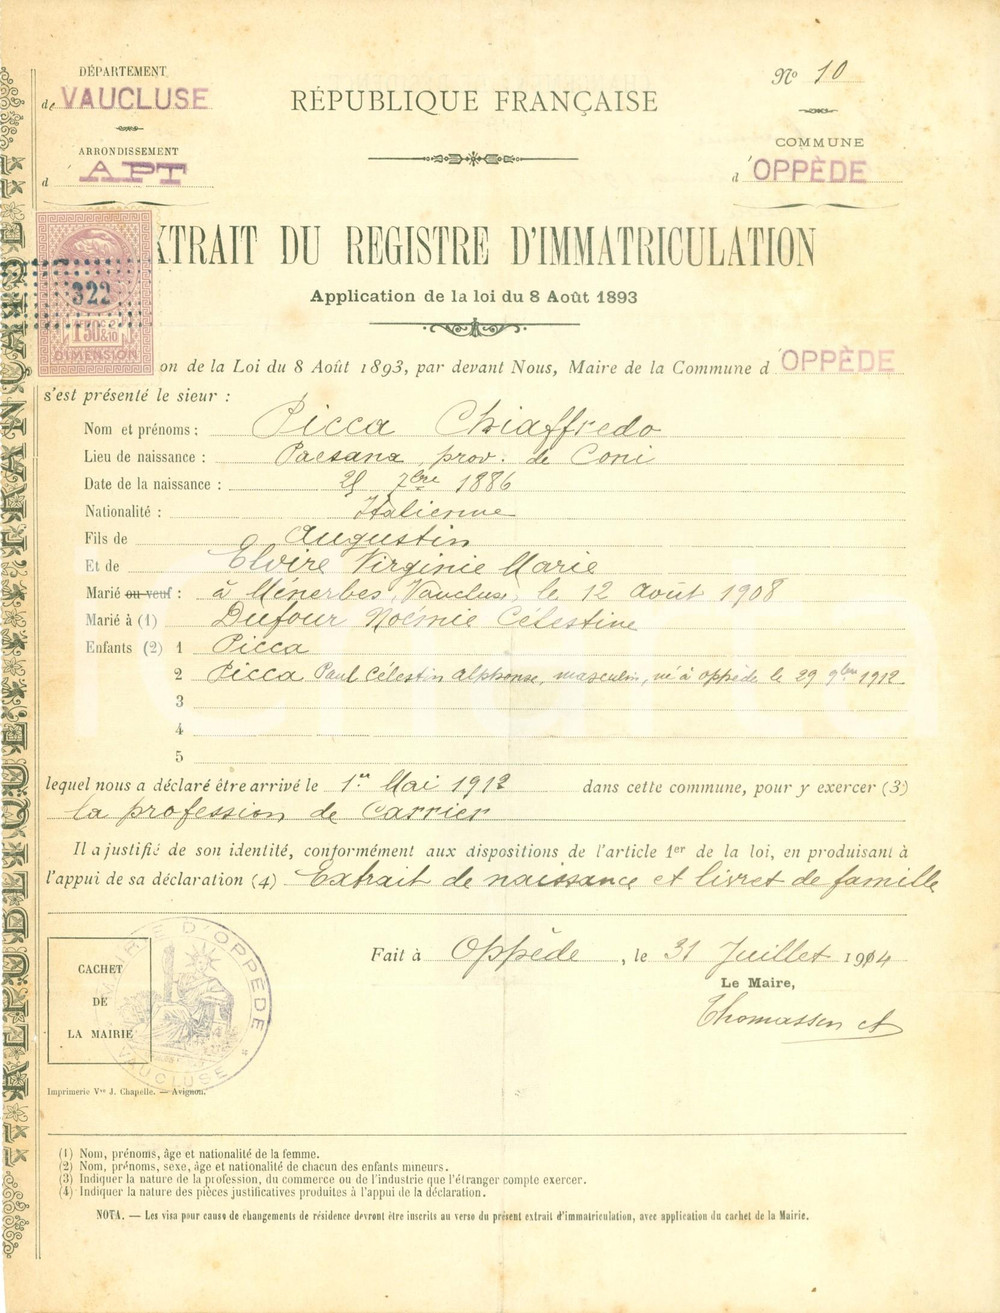 DÉPARTEMENT
de VAUCLUSE
ARRONDISSEMENT
d' APT
RÉPUBLIQUE FRANÇAISE
No 10
COMMUNE
d'OPPÈDE
XTRAIT DU REGISTRE D'IMMATRICULATION
Application de la loi du 8 Août 1893
322
1F50
DIMENSION
on de la Loi du 8 Août 1893, par devant Nous, Maire de la Commune d'OPPÈDE
s'est présenté le sieur :
Nom et prénoms : Picca Chiaffredo
Lieu de naissance : Paesana prov. de Coni
Date de la naissance : 7bre 1886
Nationalité : Italienne
Fils de Augustin
Et de Elvire Virginie Marie
Marié ou veuf : à Ménerbes, Vaucluse, le 12 août 1908
Marié à (1) Dufour Noémie Célestine
Enfants (2) 1 Picca
2 Picca Paul Célestin Alphonse, masculin, né à Oppède le 29 9bre 1912
3
4
5
lequel nous a déclaré être arrivé le 1er Mai 1912 dans cette commune, pour y exercer (3)
la profession de Carrier
Il a justifié de son identité, conformément aux dispositions de l'article 1er de la loi, en produisant à
l'appui de sa déclaration (4) Extrait de naissance et livret de famille
CACHET
DE
LA MAIRIE
MAIRIE D'OPPÈDE
VAUCLUSE
Fait à Oppède, le 31 Juillet 1914
Le Maire,
Thomassin
Imprimerie Vve J. Chapelle. — Avignon.
(1) Nom, prénoms, âge et nationalité de la femme.
(2) Nom, prénoms, sexe, âge et nationalité de chacun des enfants mineurs.
(3) Indiquer la nature de la profession, du commerce ou de l'industrie que l'étranger compte exercer.
(4) Indiquer la nature des pièces justificatives produites à l'appui de la déclaration.
NOTA. — Les visa pour cause de changements de résidence devront être inscrits au verso du présent extrait d'immatriculation, avec application du cachet de la Mairie.
RÉPUBLIQUE FRANÇAISE